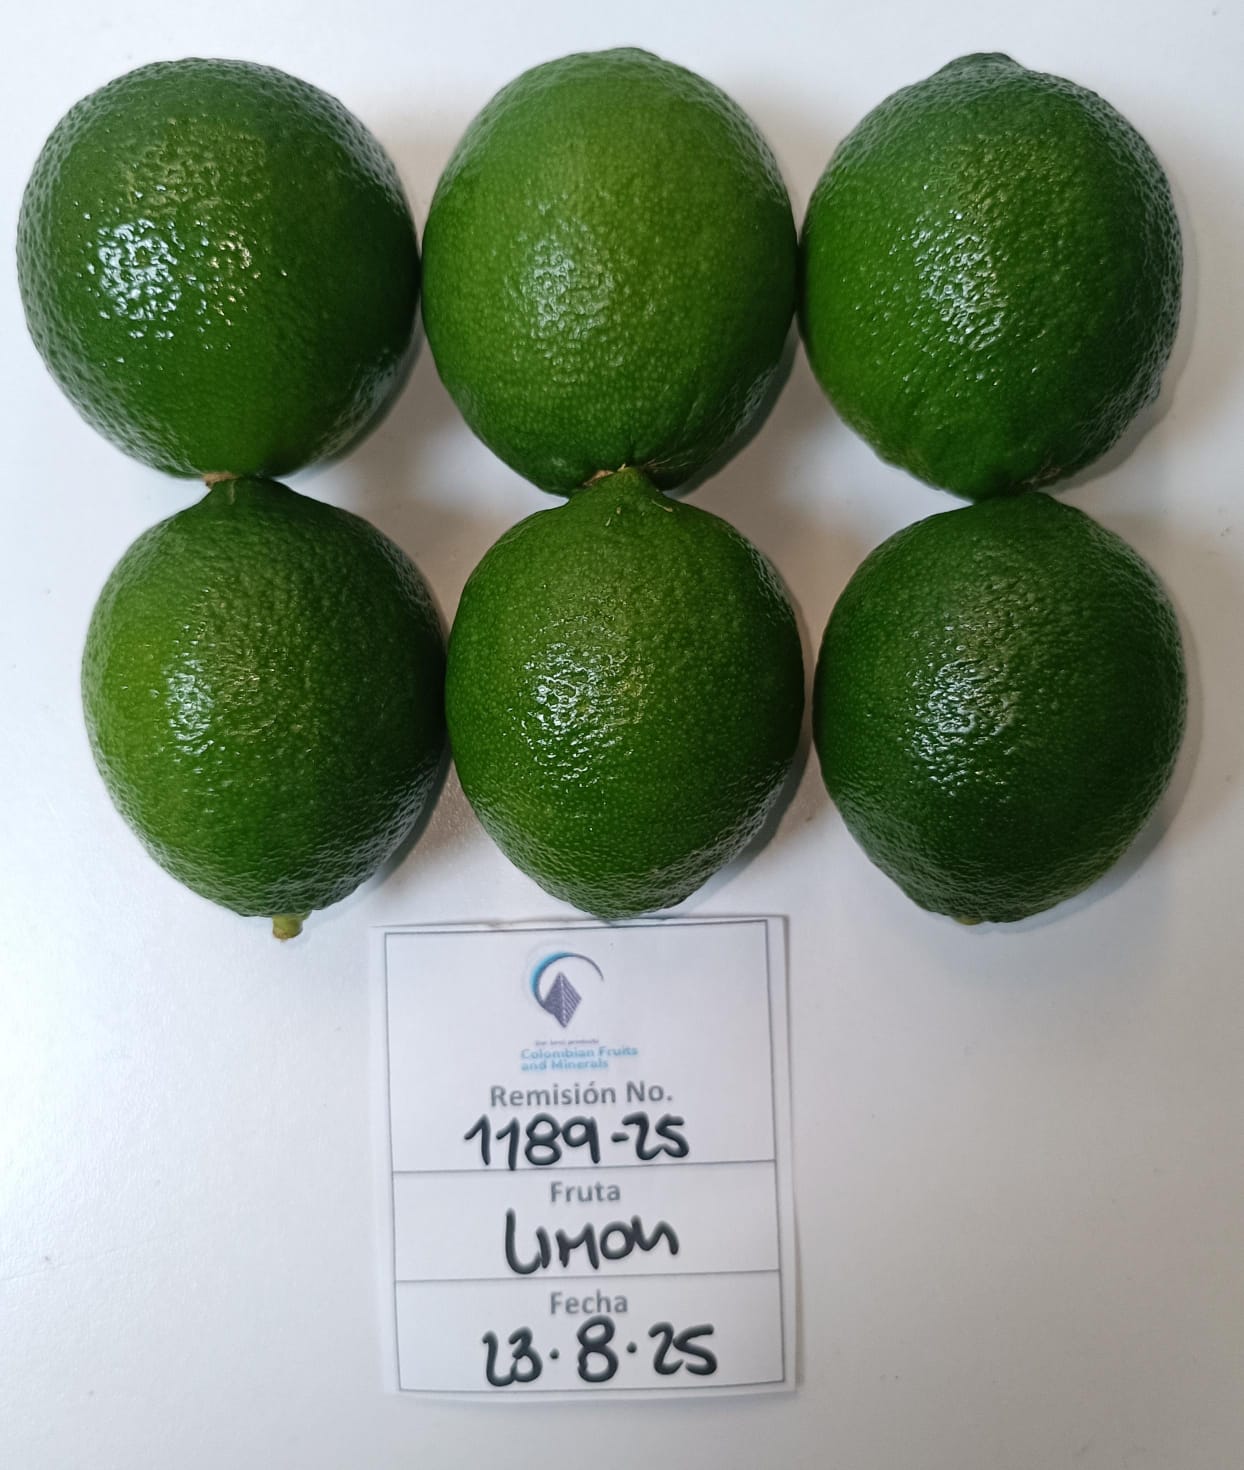 Colombian Fruits
and Minerals
Remisión No.
1189-25
Fruta
LIMON
Fecha
23.8.25